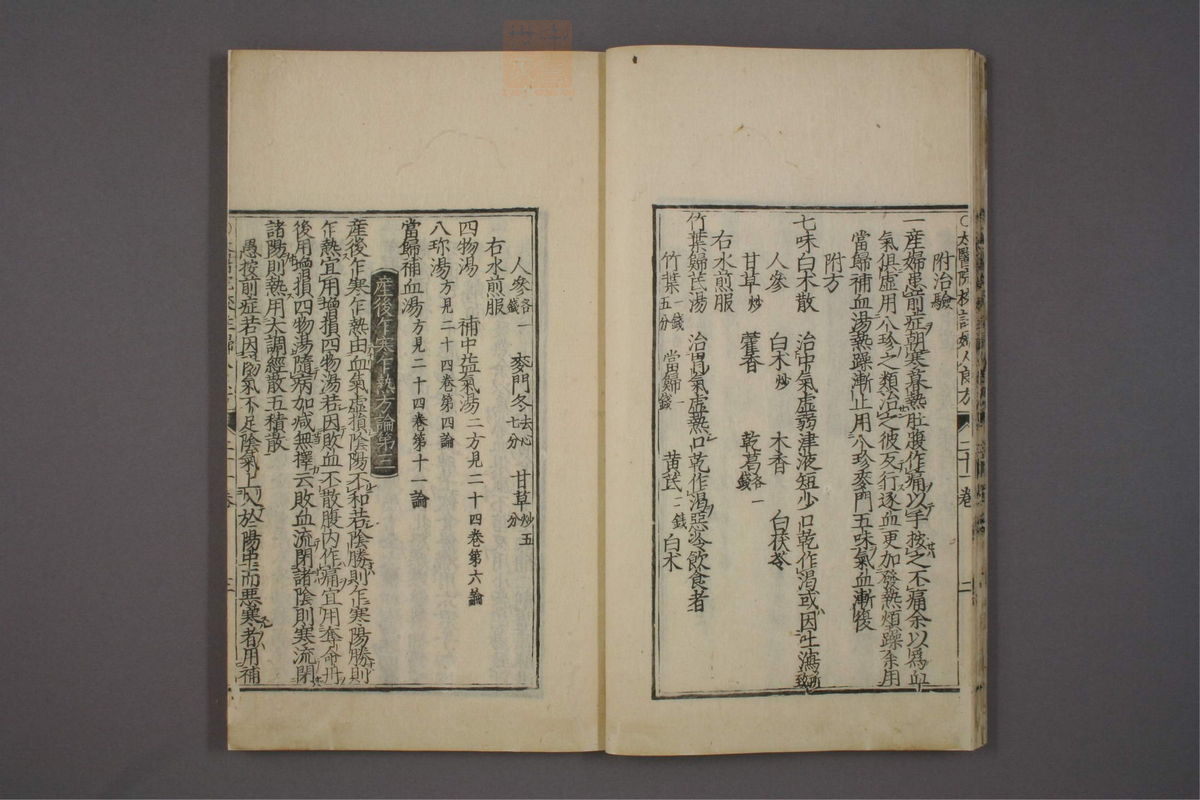 太醫院校註婦人良方 二十一卷 二
附治驗
一産婦患前症朝寒暮熱肚腹作痛以手按之不痛余以爲血
氣俱虛用八珍之類治之彼反行逐血更加發熱煩躁余用
當歸補血湯熱躁漸止用八珍麥門五味氣血漸復
附方
七味白木散 治中氣虛弱津液短少口乾作渴或因吐瀉所致
人參 白木炒 木香 白茯苓
甘草炒 藿香 乾葛各一錢
右水煎服
竹葉歸芪湯 治胃氣虛熱口乾作渴惡冷飲食者
竹葉一錢五分 當歸一錢 黄芪二錢 白木
人參各一錢 麥門冬去心七分 甘草炒五分
右水煎服
四物湯 補中益氣湯二方見二十四卷第六論
八珎湯方見二十四卷第四論
當歸補血湯方見二十四卷第十一論
産後乍寒乍熱方論第三
産後乍寒乍熱由血氣虛損陰陽不和若陰勝則乍寒陽勝則
乍熱宜用增損四物湯若因敗血不散腹内作痛宜用奪命丹
後用增損四物湯隨病加減無擇云敗血流閉諸陰則寒流閉
諸陽則熱用大調經散五積散
愚按前症若因陽氣不足陰氣上入於陽中而悪寒者用補